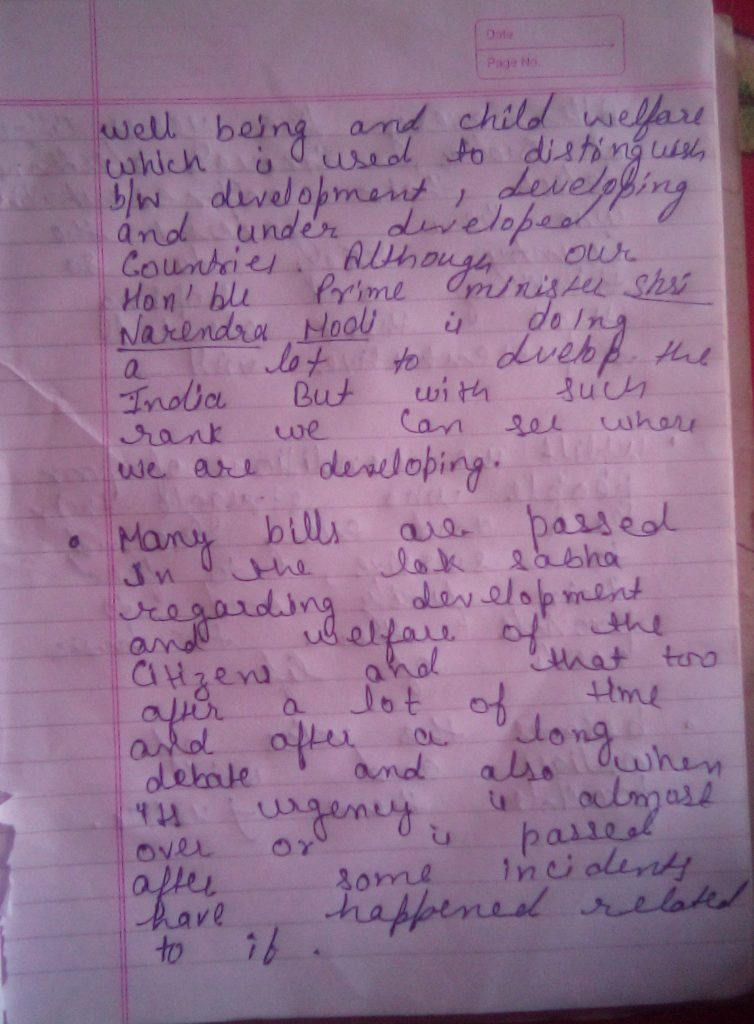 Date
Page No.
well being and child welfare
which is used to distinguish
b/w development, developing
and under developed
Countries. Although our
Hon'ble Prime minister Shri
Narendra Modi is doing
a lot to dvelop the
India But with such
rank we can see where
we are developing.
• Many bills are passed
In the lok sabha
regarding development
and welfare of the
Citizens and that too
after a lot of time
and after a long
debate and also when
its urgency is almost
over or is passed
after some incidents
have happened related
to it.